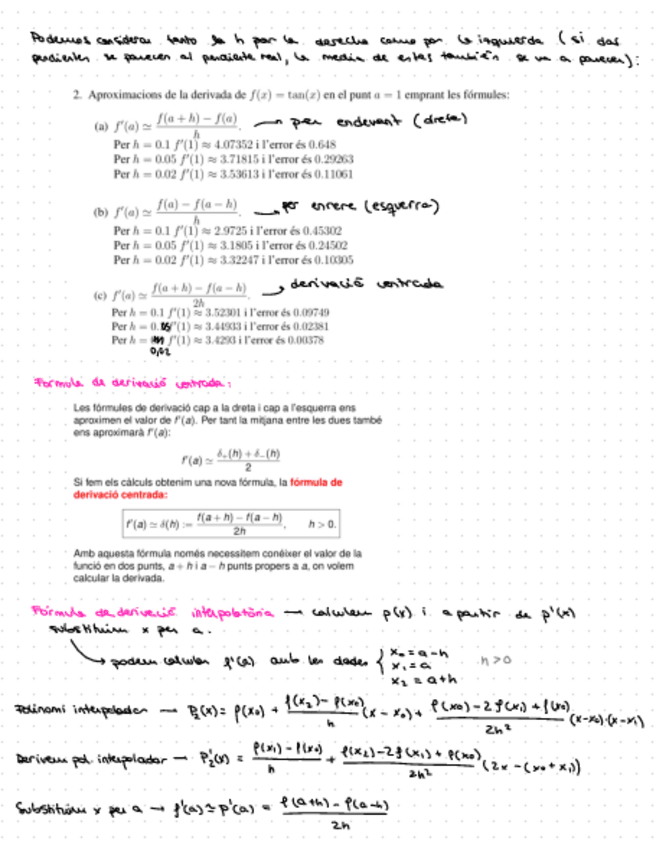 Podemos considerar tanto la h por la derecha como por la izquierda (si dos
pendientes se parecen al pendiente real, la media de estas también se va a parecer):
2. Aproximacions de la derivada de f(x) = tan(x) en el punt a = 1 emprant les fórmules:
(a) f'(a) ≃ (f(a + h) − f(a))/h. → per endevant (dreta)
Per h = 0.1 f'(1) ≈ 4.07352 i l'error és 0.648
Per h = 0.05 f'(1) ≈ 3.71815 i l'error és 0.29263
Per h = 0.02 f'(1) ≈ 3.53613 i l'error és 0.11061
(b) f'(a) ≃ (f(a) − f(a − h))/h. → per enrere (esquerra)
Per h = 0.1 f'(1) ≈ 2.9725 i l'error és 0.45302
Per h = 0.05 f'(1) ≈ 3.1805 i l'error és 0.24502
Per h = 0.02 f'(1) ≈ 3.32247 i l'error és 0.10305
(c) f'(a) ≃ (f(a + h) − f(a − h))/2h. → derivació centrada
Per h = 0.1 f'(1) ≈ 3.52301 i l'error és 0.09749
Per h = 0.05 f'(1) ≈ 3.44933 i l'error és 0.02381
Per h = f'(1) ≈ 3.4293 i l'error és 0.00378
0,02
Fórmula de derivació centrada:
Les fórmules de derivació cap a la dreta i cap a l'esquerra ens
aproximen el valor de f'(a). Per tant la mitjana entre les dues també
ens aproximarà f'(a):
f'(a) ≃ (δ₊(h) + δ₋(h))/2
Si fem els càlculs obtenim una nova fórmula, la fórmula de
derivació centrada:
f'(a) ≃ δ(h) := (f(a + h) − f(a − h))/2h, h > 0.
Amb aquesta fórmula només necessitem conéixer el valor de la
funció en dos punts, a + h i a − h punts propers a a, on volem
calcular la derivada.
Fórmula de derivació interpolatòria → calculem p(x) i a partir de p'(x)
substituim x per a.
podem calcular f'(a) amb les dades { x₀ = a-h
x₁ = a h > 0
x₂ = a+h
Polinomi interpolador → P₂(x) = f(x₀) + (f(x₂) - f(x₀))/h (x - x₀) + (f(x₀) - 2f(x₁) + f(x₀))/2h² (x-x₀)·(x-x₁)
Derivem pol. interpolador → P₂'(x) = (f(x₁) - f(x₀))/h + (f(x₂) - 2f(x₁) + f(x₀))/2h² (2x - (x₀ + x₁))
Substituim x per a → f'(a) ≃ p'(a) = (f(a+h) - f(a-h))/2h